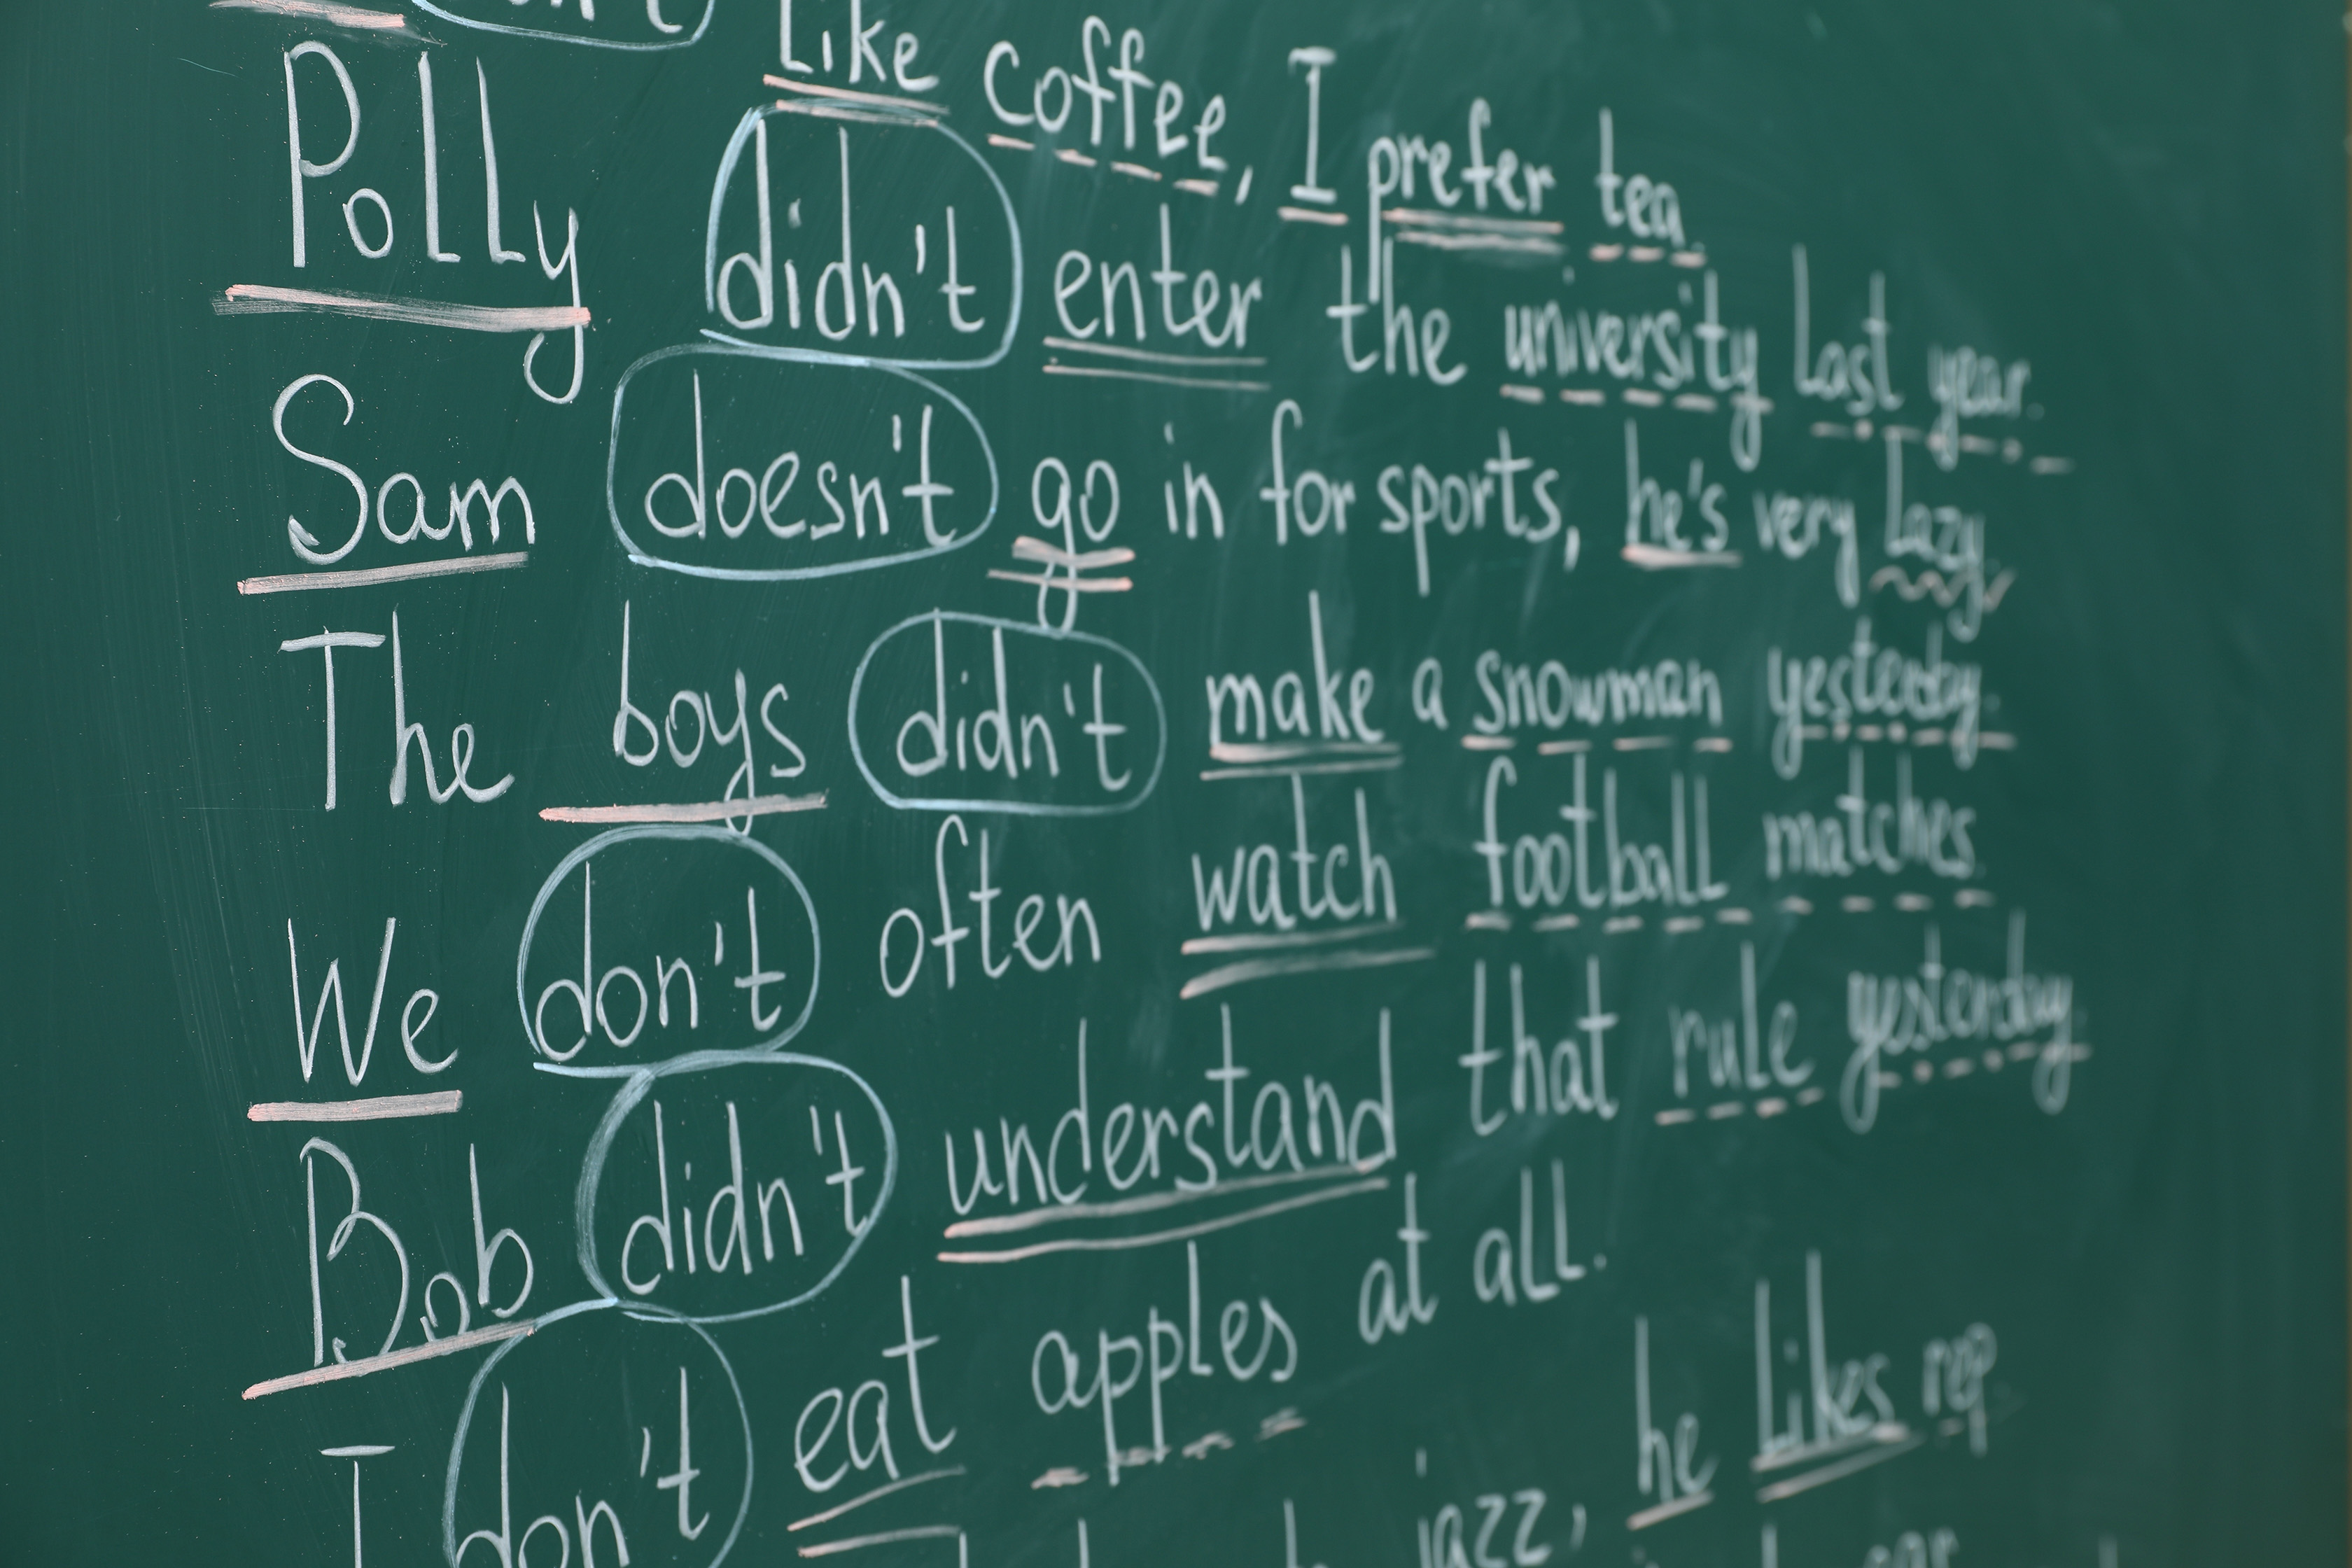 Like coffee, I prefer tea.
Polly didn't enter the university last year.
Sam doesn't go in for sports, he's very lazy.
The boys didn't make a snowman yesterday.
We don't often watch football matches.
Bob didn't understand that rule yesterday.
I don't eat apples at all.
jazz, he likes rep.